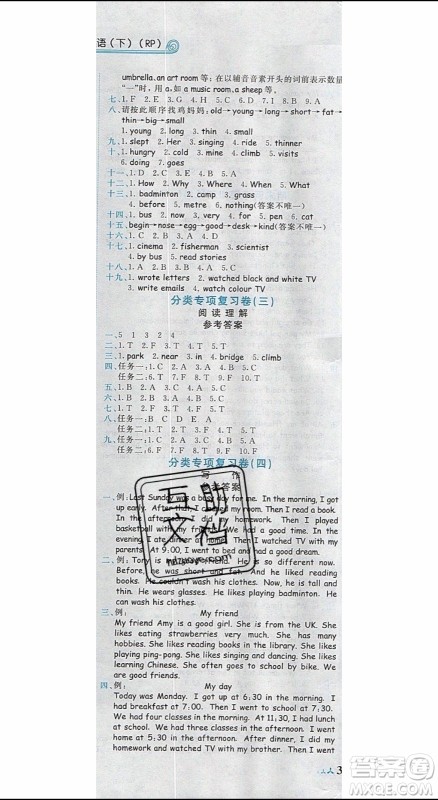 语（下）（RP）
umbrella, an art room 等；在以辅音音素开头的词前表示数量
“一”时，用 a，如 a music room, a sheep 等。
七、1. F 2. E 4. G 5. B
八、请按此顺序找鸡妈妈：young→old→long→short→fat→
thin→big→small
1. young 2. long 3. short 4. fat
5. thin 6. small
九、1. slept 3. singing 4. ride 5. thinner
十、1. hungry 2. cold 3. mine 4. climb 5. visits
6. doing 7. goes
十一、1. T 2. A 3. B 4. D 5. A
十二、1. How 2. Why 3. Where 4. What
十三、1. badminton 2. camp 3. grass
4. before 5. metre 6. nothing(答案不唯一)
十四、1. bus 2. now 5. yes 6. pen 7. cat
十五、begin→nose→egg→good→desk→kind(答案不唯一)
十六、1. T 2. F 3. T 4. T 5. T
十七、1. cinema 2. fisherman 3. science
4. study 5. windy
十八、1. wrote letters 2. watched black and white TV
3. write emails 4. watch colour TV
分类专项复习卷(三)
阅读理解
参考答案
一、5 1 3 2 4
二、1. T 2. F 3. T 4. T 5. F
三、1. park 2. near 3. in 4. bridge 5. climb
四、任务一：1. T 2. A 3. A 4. C 5. A
任务二：6. T 7. F 8. F 9. T 10. F
五、1. C 2. A 3. A 4. B 5. A
六、任务一：B C D E A
任务二：1. F 2. T 3. F 4. T 5. F
七、1. C 2. A 3. C 4. B 5. C
八、1. T 2. F 3. T 4. T 5. F
九、任务一：1. C 2. A 3. A 4. C 5. B
任务二：6. T 7. T 8. F 9. T 10. F
分类专项复习卷(四)
写作
参考答案
一、例：Last Sunday was a busy day for me. In the morning, I
cleaned my room. Then I read a
book. In the afternoon, I played
basketball with my friends. In the
evening, I ate dinner at home. Then I watched TV with my
parents. At 10:00, I went to bed and had a good dream.
二、例：Tony is my friend. He is so different now.
Before, he was short and fat. And he liked reading
books. He couldn't wash his clothes. Now, he is tall and
thin. He wears glasses. He likes playing badminton. He
can wash his clothes.
三、例： My friend
My friend Amy is a good girl. She is from the UK. She
likes eating strawberries very much. She often borrows
and reads books in the library. She likes singing. She also
likes playing ping-pong. She likes singing and dancing. She
likes learning Chinese. She often goes to school on foot.
四、例： My day
Today was Monday. I got up at 6:30 in the morning. I
had breakfast at 7:00 and went to school at 7:30. We
had four classes in the morning. I had lunch at school.
We had three classes in the afternoon. Then I went
home at 5:00. I had dinner at 6:30 in the evening. I did
my homework and watched TV with my brother. Then I went